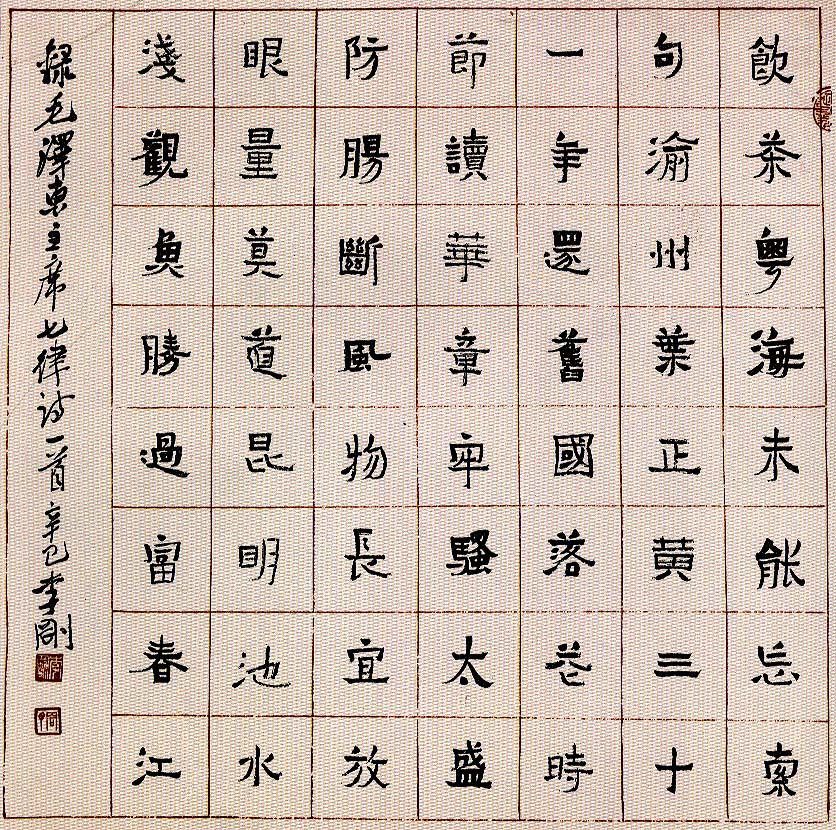 飲茶粵海未能忘索
句渝州葉正黃三十
一年還舊國落花時
節讀華章牢騷太盛
防腸斷風物長宜放
眼量莫道昆明池水
淺觀魚勝過富春江
錄毛澤東主席七律詩一首辛巳李剛